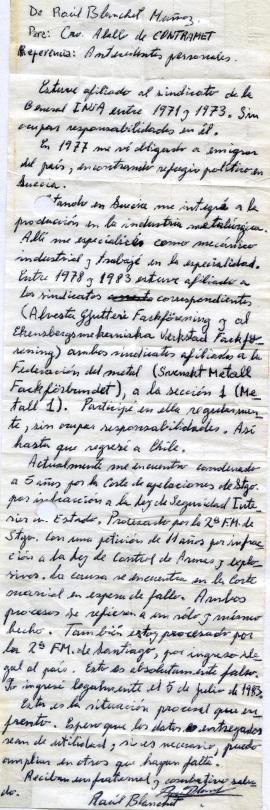 De Raúl Blanchet Muñoz.
Para: Cro. Abello de CONTRAMET
Referencia: Antecedentes personales.
Estuve afiliado al sindicato de la
General INSA entre 1971 y 1973. Sin
ocupar responsabilidades en él.
En 1977 me vi obligado a emigrar
del país, encontrando refugio político en
Suecia.
Estando en Suecia me integré a la
producción en la industria metalúrgica.
Allí me especialicé como mecánico
industrial y trabajé en la especialidad.
Entre 1978 y 1983 estuve afiliado a
los sindicatos correspondientes
(Alvesta Gjuteri Fackförening y al
Ekensbergsmekaniska Verkstad Fackfö-
rening) ambos sindicatos afiliados a la
Federación del metal (Svenskt Metall
Fackförbundet), a la sección 1 (Me-
tall 1). Participé en ella regularmen-
te, sin ocupar responsabilidades. Así
hasta que regresé a Chile.
Actualmente me encuentro condenado
a 5 años por la Corte de apelaciones de Stgo.
por infracción a la Ley de Seguridad Inte
rior del Estado. Procesado por la 2ª F.M. de
Stgo. con una petición de 11 años por infrac
ción a la Ley de Control de Armas y explo-
sivos. La causa se encuentra en la Corte
marcial en espera de fallo. Ambos
procesos se refieren a un sólo y mismo
hecho. También estoy procesado por
la 2ª F.M. de Santiago, por ingreso ile-
gal al país. Esto es absolutamente falso.
Yo ingresé legalmente el 5 de julio de 1983.
Esta es la situación procesal que en
frento. Espero que los datos entregados
sean de utilidad, si es necesario, puedo
ampliar en otros que hagan falta.
Reciban un fraternal y combativo salu-
do.
Raúl Blanchet